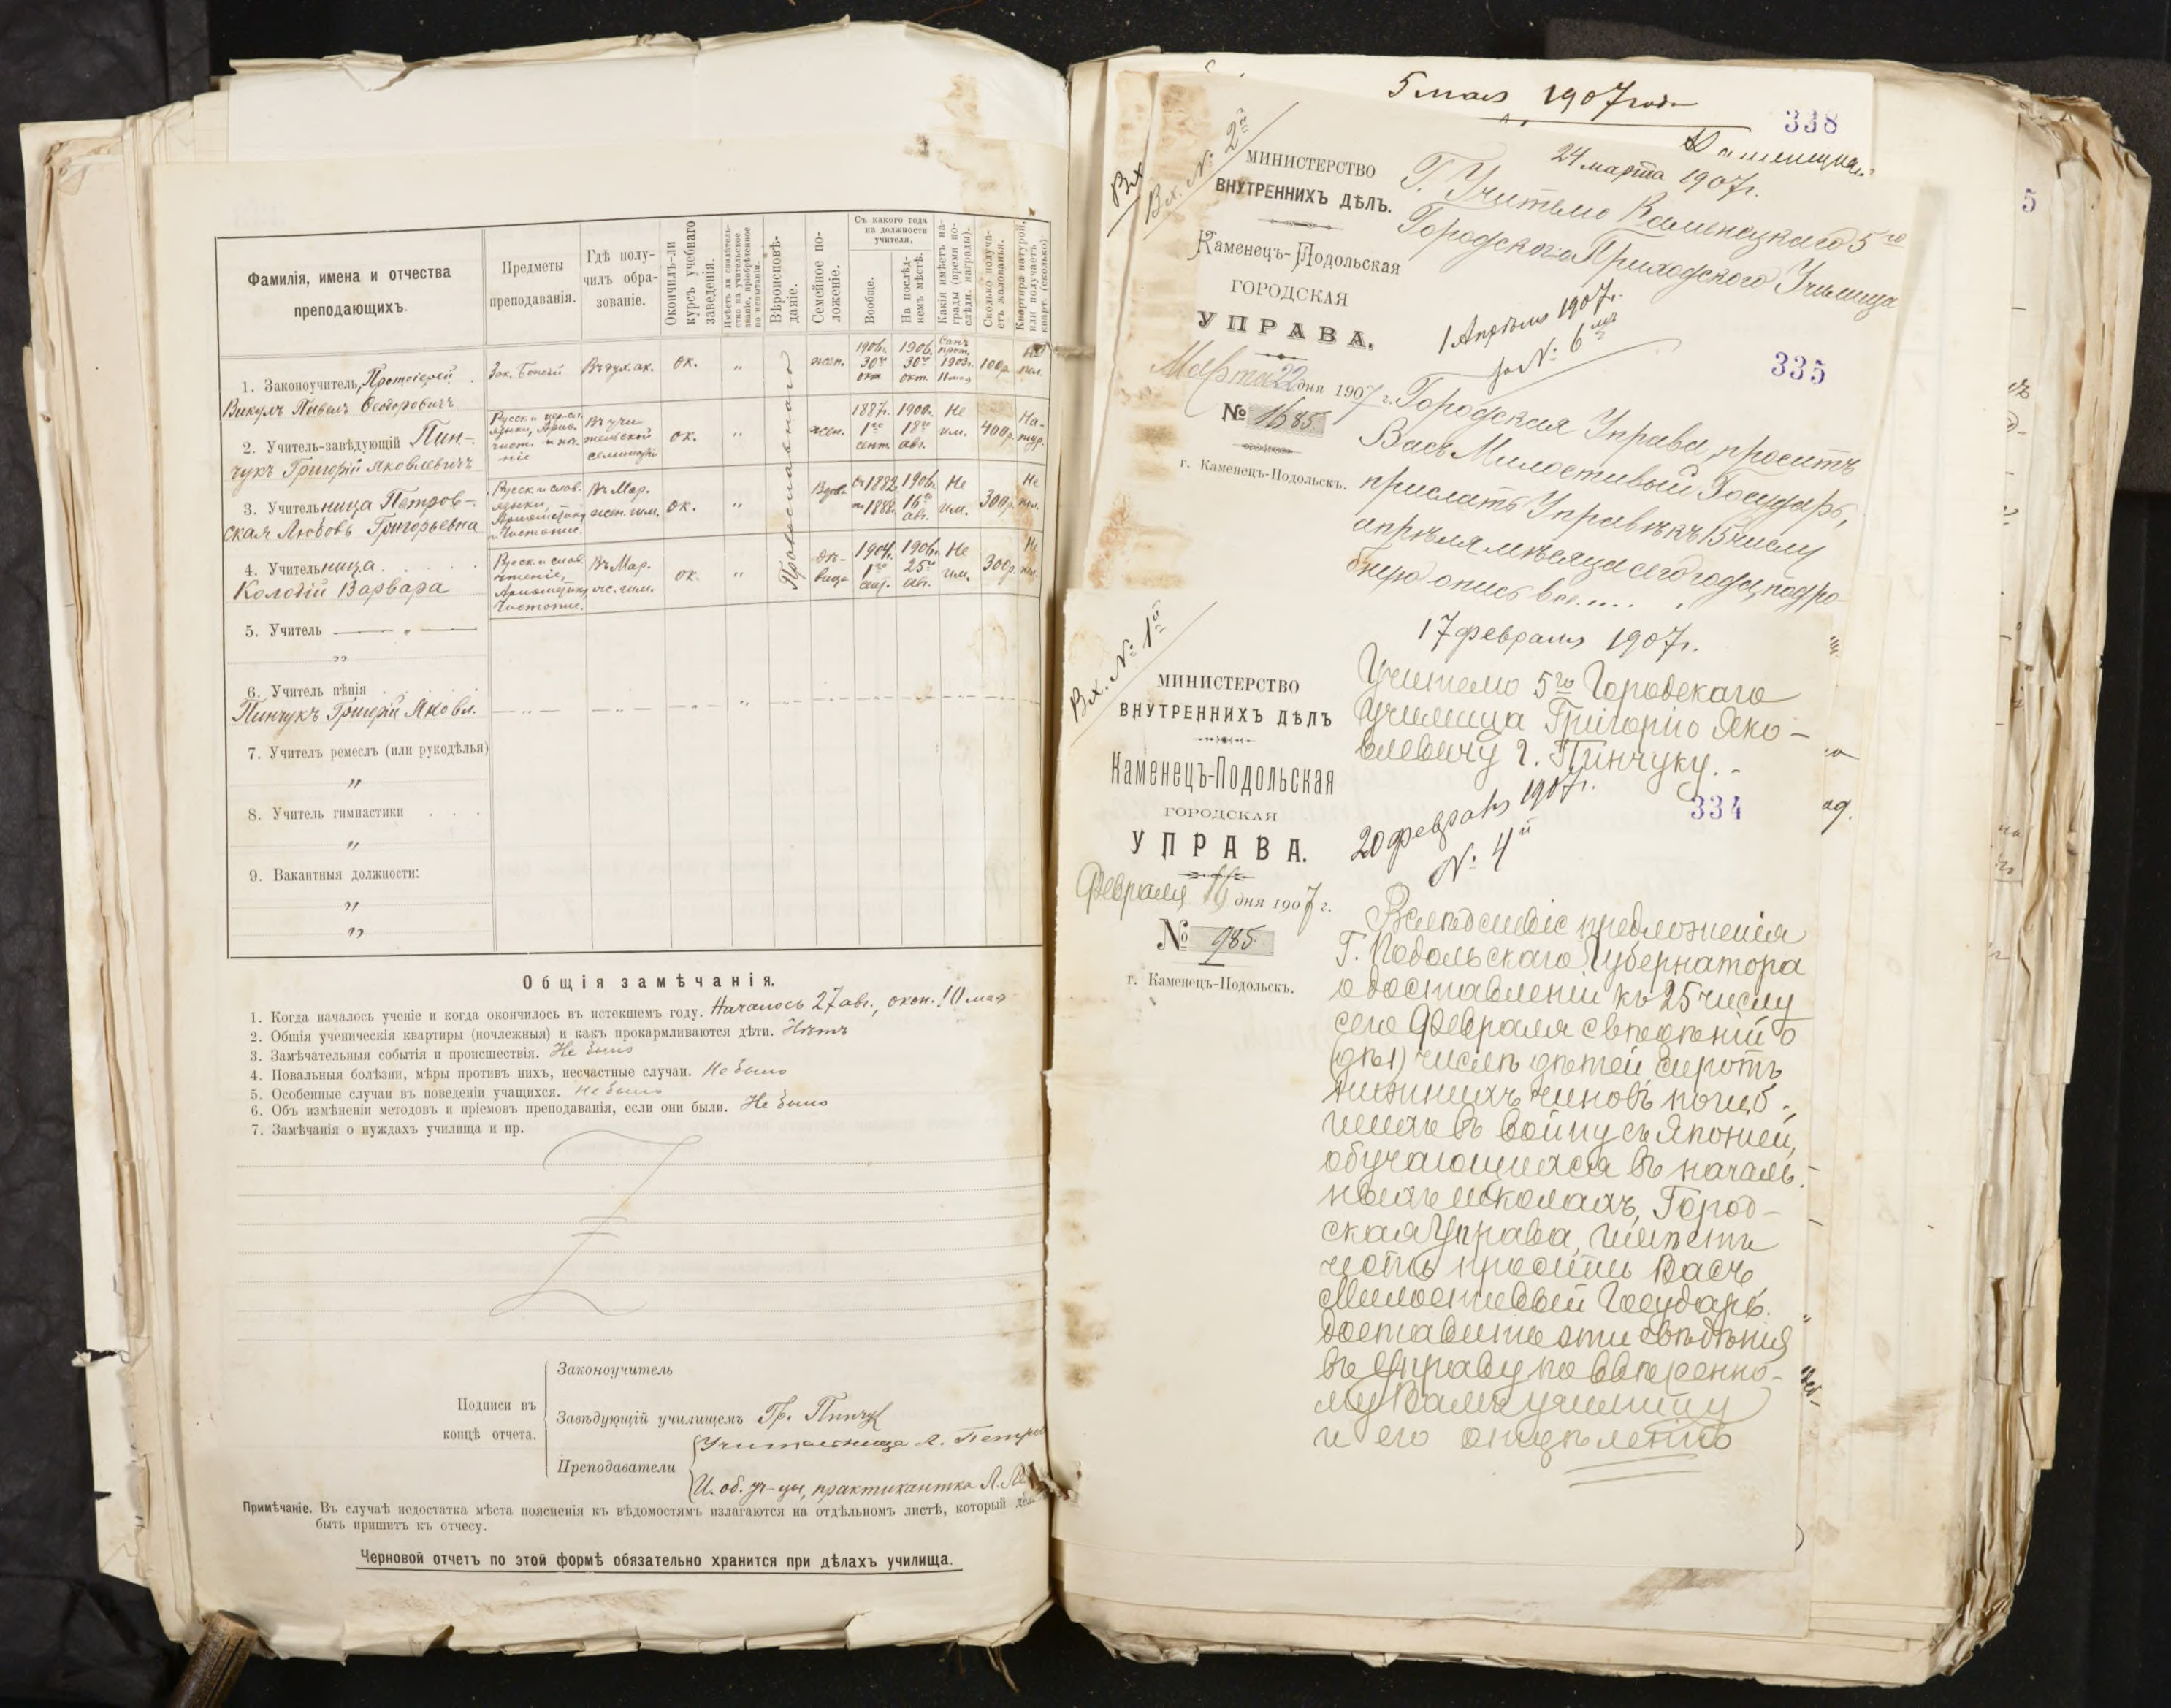 Фамилія, имена и отчества
преподающихъ.
Предметы
преподаванія.
Гдѣ полу-
чилъ обра-
зованіе.
Окончилъ-ли
курсъ учебнаго
заведенія.
Имѣетъ ли свидѣтель-
ство на учительское
званіе, пріобрѣтенное
по испытанію.
Вѣроисповѣ-
даніе.
Семейное по-
ложеніе.
Съ какого года
на должности
учителя.
Вообще.
На послѣд-
немъ мѣстѣ.
Какія имѣетъ на-
грады (время по-
слѣдн. награды).
Сколько получа-
етъ жалованья.
Квартира натурой,
или получаетъ
кварт. (сколько).
1. Законоучитель, Протоіерей
Викулъ Павелъ Ѳеодоровичъ
Зак. Божій
Въ дух. ак.
ок.
"
жен.
1906г.
30го
окт.
1906.
30го
окт.
Санъ
прот.
1903г.
100р.
Не
пол.
2. Учитель-завѣдующій Пин-
чукъ Григорій Яковлевичъ
Въ учи-
тельской
семинаріи
ок.
"
жен.
1887г.
1го
сент.
1900г.
18го
авг.
Не
им.
400р.
На-
тур.
3. Учительница Петров-
ская Любовь Григорьевна
Русск. и слав.
языки,
Ариѳметику
и Чистопис.
Въ Мар.
жен. гим.
ок.
"
Вдова
съ 1882
по 1888г.
1906г.
16го
авг.
Не
им.
300р.
Не
пол.
4. Учительница
Колодій Варвара
Русск. и слав.
чтеніе,
Ариѳметику,
Чистопис.
Въ Мар.
жс. гим.
ок.
"
Дѣ-
вица
1904г.
1го
сент.
1906г.
25го
авг.
Не
им.
300р.
Не
пол.
Православнаго
5. Учитель — „ —
"
6. Учитель пѣнія
Пинчукъ Григорій Яковл.
7. Учитель ремеслъ (или рукодѣлья)
"
8. Учитель гимнастики . . .
"
9. Вакантныя должности:
"
"
Общія замѣчанія.
1. Когда началось ученіе и когда окончилось въ истекшемъ году. Началось 27 авг., окон. 10 мая
2. Общія ученическія квартиры (ночлежныя) и какъ прокармливаются дѣти. Нѣтъ
3. Замѣчательныя событія и происшествія. Не было
4. Повальныя болѣзни, мѣры противъ нихъ, несчастные случаи. Не было
5. Особенные случаи въ поведеніи учащихся. Не было
6. Объ измѣненіи методовъ и пріемовъ преподаванія, если они были. Не было
7. Замѣчанія о нуждахъ училища и пр.
Подписи въ
концѣ отчета.
Законоучитель
Завѣдующій училищемъ Гр. Пинчук
Преподаватели
Учительница Л. Петров
И. об. уч-цы, практикантка Л.
Примѣчаніе. Въ случаѣ недостатка мѣста поясненія къ вѣдомостямъ излагаются на отдѣльномъ листѣ, который
быть пришитъ къ отчесу.
Черновой отчетъ по этой формѣ обязательно хранится при дѣлахъ училища.
5 мая 1907 года
338
Вх
Вх. № 2й
МИНИСТЕРСТВО
ВНУТРЕННИХЪ ДѢЛЪ.
Каменецъ-Подольская
ГОРОДСКАЯ
УПРАВА.
Марта 22 дня 1907 г.
№ 1685
г. Каменецъ-Подольскъ.
24 марта 1907г.
Г. Учителю Каменецкаго 5го
Городского Приходского Училища
1 Апрѣля 1907г.
за № 6мъ
335
Городская Управа проситъ
Васъ Милостивый Государь,
прислать Управѣ къ 15 числу
апрѣля мѣсяца сего года, подро-
бную опись все....
5
Вх. № 1й
МИНИСТЕРСТВО
ВНУТРЕННИХЪ ДѢЛЪ
Каменецъ-Подольская
ГОРОДСКАЯ
УПРАВА.
Февраля 16 дня 1907 г.
№ 985
г. Каменецъ-Подольскъ.
17 февраля 1907г.
Учителю 5го Городскаго
Училища Григорію Яко-
влевичу г. Пинчуку.-
20 февраля 1907г.
№ 4й
334
Вслѣдствіе предложенія
Г. Подольскаго Губернатора
о доставленіи къ 25 числу
сего Февраля свѣдѣній о
числѣ дѣтей сиротъ
нижнихъ чиновъ погиб-
шихъ въ войну съ Японіей,
обучающихся въ началь-
ныхъ школахъ, Город-
ская Управа, имѣетъ
честь просить Васъ
Милостивый Государь.
доставить эти свѣдѣнія
въ Управу по ввѣренно-
му Вамъ училищу
и его отдѣленію